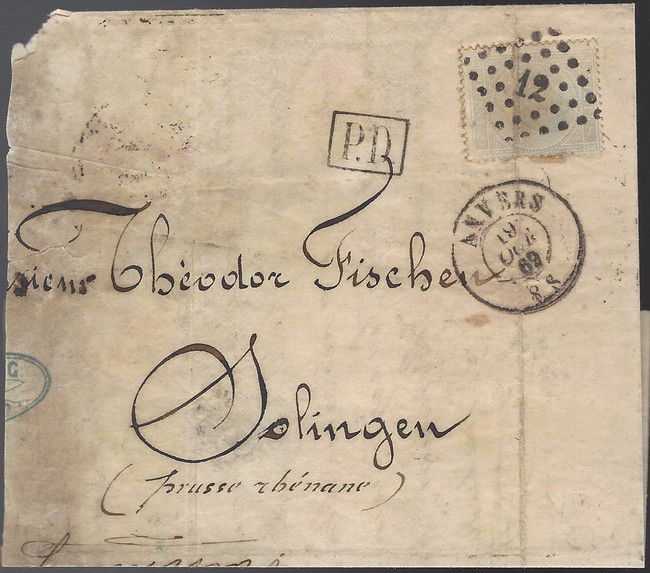 12
P.D.
ANVERS
19
OCT
69
8 S
Théodor Fischer
Solingen
(prusse rhénane)